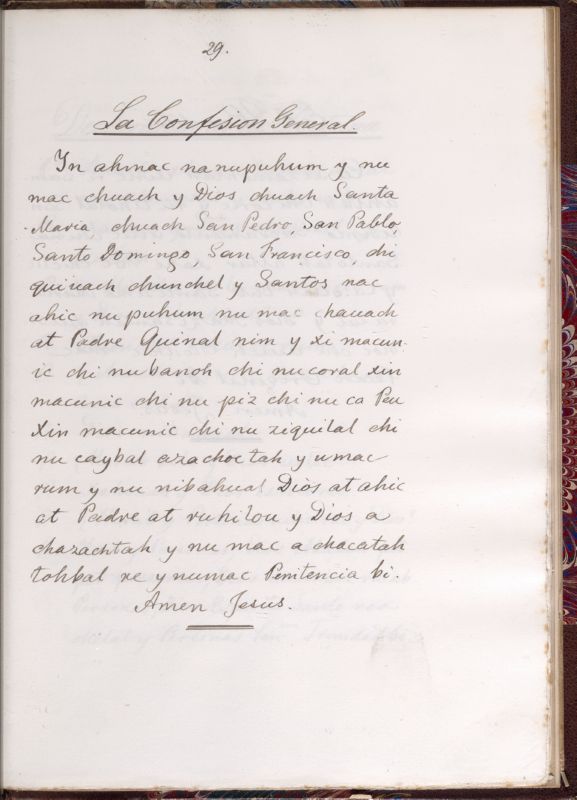 29.
La Confesion General.
In ahmac nanupuhum y nu
mac chuach y Dios chuach Santa
Maria, chuach San Pedro, San Pablo,
Santo Domingo, San Francisco, chi
quiuach chunchel y Santos nac
ahic nu puhum nu mac chauach
at Padre Quinal nim y xi macun-
ic chi nu banoh chi nu coral xin
macunic chi nu piz chi nu ca Peu
Xin macunic chi nu ziquilal chi
nu caybal azachoctah y umac
rum y nu nibahual Dios at ahic
at Padre at ruhilou y Dios a
chazachtah y nu mac a chacatah
tohbal re y numac Penitencia bi.
Amen Jesus.